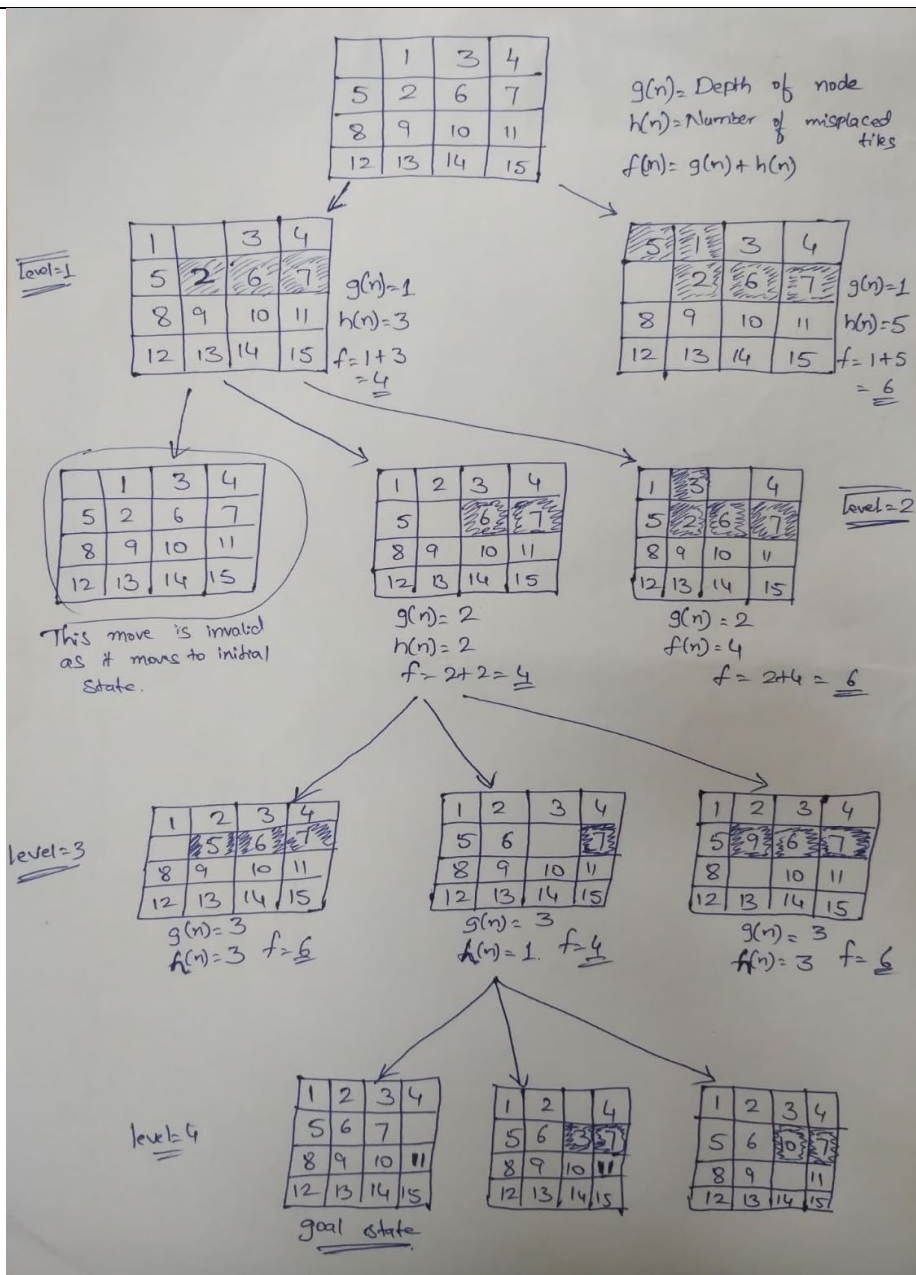 1 3 4
5 2 6 7
8 9 10 11
12 13 14 15
g(n)= Depth of node
h(n)= Number of misplaced
tiles
f(n)= g(n)+h(n)
Level=1
1 3 4
5 2 6 7
8 9 10 11
12 13 14 15
g(n)=1
h(n)=3
f=1+3
=4
5 1 3 4
2 6 7
8 9 10 11
12 13 14 15
g(n)=1
h(n)=5
f=1+5
=6
1 3 4
5 2 6 7
8 9 10 11
12 13 14 15
This move is invalid
as it movs to initial
State.
1 2 3 4
5 6 7
8 9 10 11
12 13 14 15
g(n)=2
h(n)=2
f=2+2=4
1 3 4
5 2 6 7
8 9 10 11
12 13 14 15
g(n)=2
f(n)=4
f=2+4=6
Level=2
level=3
1 2 3 4
5 6 7
8 9 10 11
12 13 14 15
g(n)=3
h(n)=3 f=6
1 2 3 4
5 6 7
8 9 10 11
12 13 14 15
g(n)=3
h(n)=1. f=4
1 2 3 4
5 9 6 7
8 10 11
12 13 14 15
g(n)=3
h(n)=3 f=6
level=4
1 2 3 4
5 6 7
8 9 10 11
12 13 14 15
goal state
1 2 4
5 6 3 7
8 9 10 11
12 13 14 15
1 2 3 4
5 6 7
8 9 11
12 13 14 15